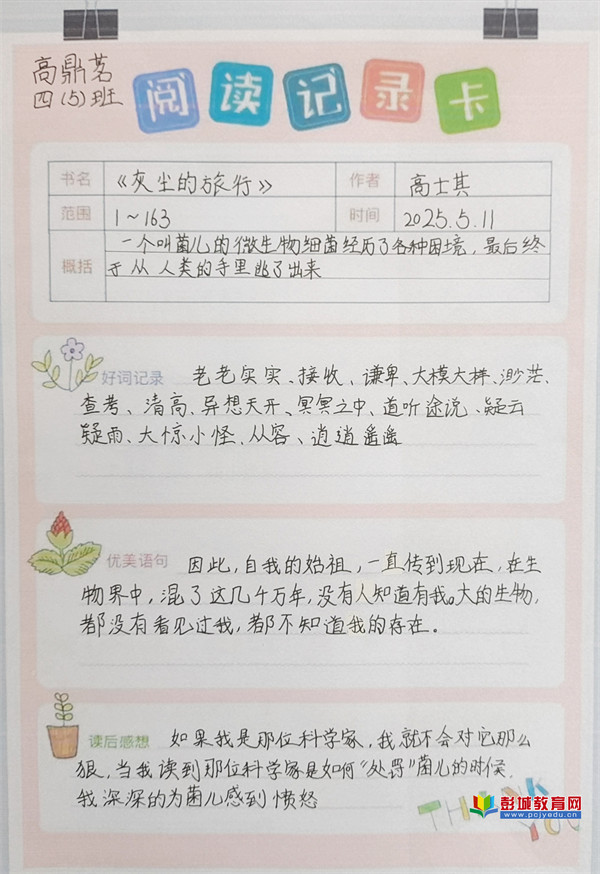 高鼎茗
四(5)班
阅读记录卡
书名 《灰尘的旅行》 作者 高士其
范围 1~163 时间 2025.5.11
一个叫菌儿的微生物细菌经历了各种困境,最后终
概括 于从人类的手里逃了出来
好词记录 老老实实、接收、谦卑、大模大样、渺茫、
查考、清高、异想天开、冥冥之中、道听途说、疑云
疑雨、大惊小怪、从容、逍逍遥遥
优美语句 因此,自我的始祖,一直传到现在,在生
物界中,混了这几千万年,没有人知道有我。大的生物,
都没有看见过我,都不知道我的存在。
读后感想 如果我是那位科学家,我就不会对它那么
狠,当我读到那位科学家是如何“处罚”菌儿的时候,
我深深的为菌儿感到愤怒
THANK
YOU
彭城教育网
www.pcjyedu.cn